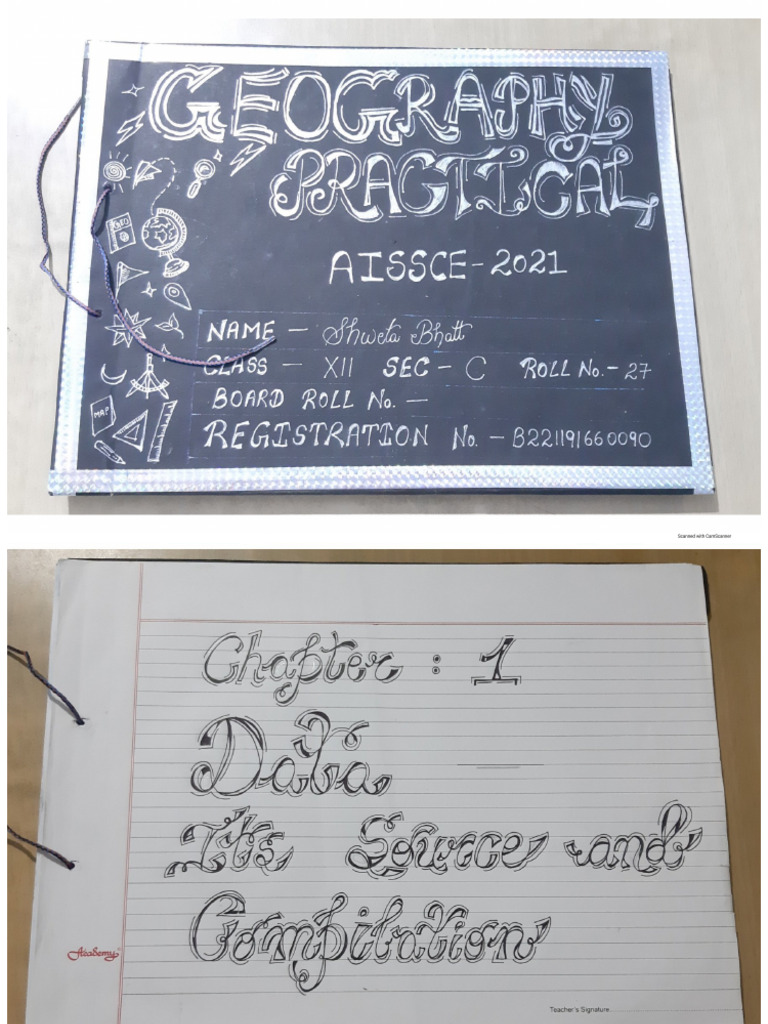 GEOGRAPHY
PRACTICAL
AISSCE-2021
NAME - Shweta Bhatt
CLASS - XII SEC - C ROLL No. - 27
BOARD ROLL No. -
REGISTRATION No. - B221191660090
MAP
Scanned with CamScanner
Chapter : 1
Data
Its Source and
Compilation
Academy
Teacher's Signature